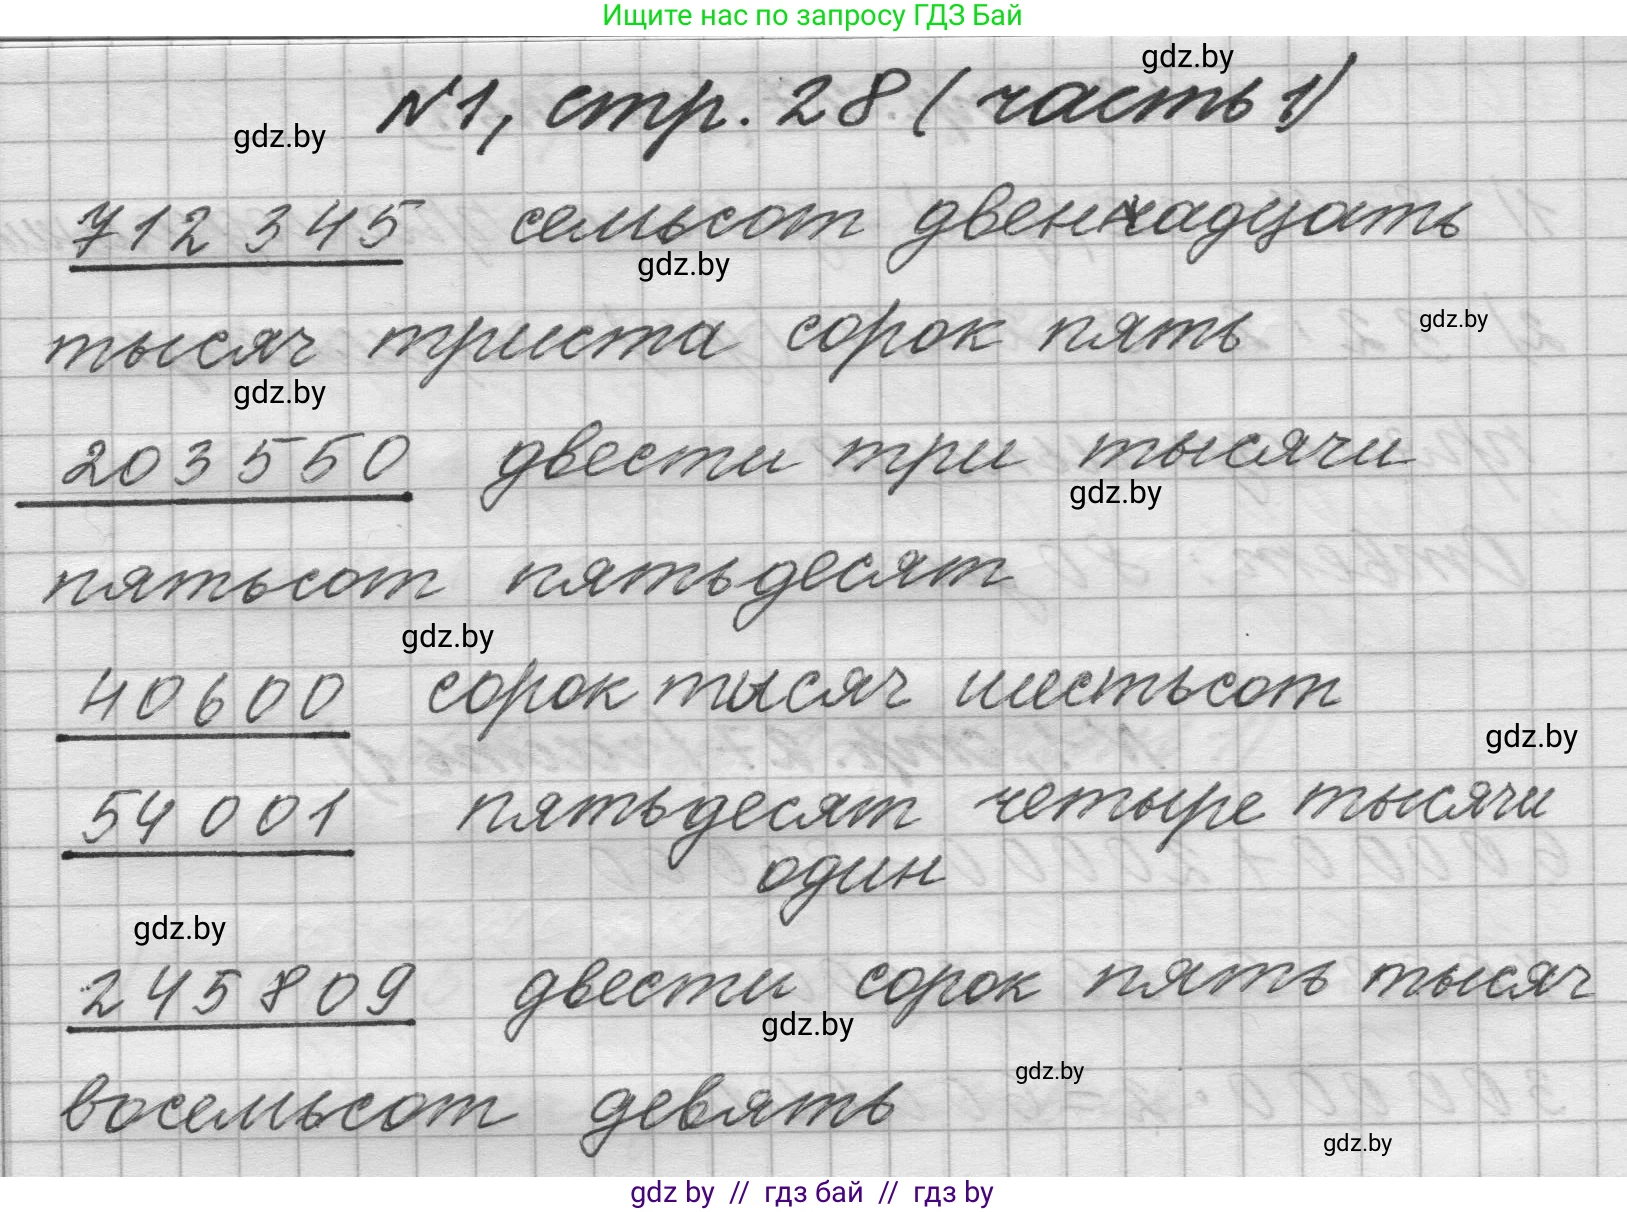 Ищите нас по запросу ГДЗ Бай
gdz.by
№1, стр. 28 (часть 1)
gdz.by
712 345 семьсот двенадцать
gdz.by
тысяч триста сорок пять
gdz.by
gdz.by
203 550 двести три тысячи
gdz.by
пятьсот пятьдесят
gdz.by
40600 сорок тысяч шестьсот
gdz.by
54 001 пятьдесят четыре тысячи
один
gdz.by
245 809 двести сорок пять тысяч
gdz.by
gdz.by
восемьсот девять
gdz.by
gdz by // гдз бай // гдз by